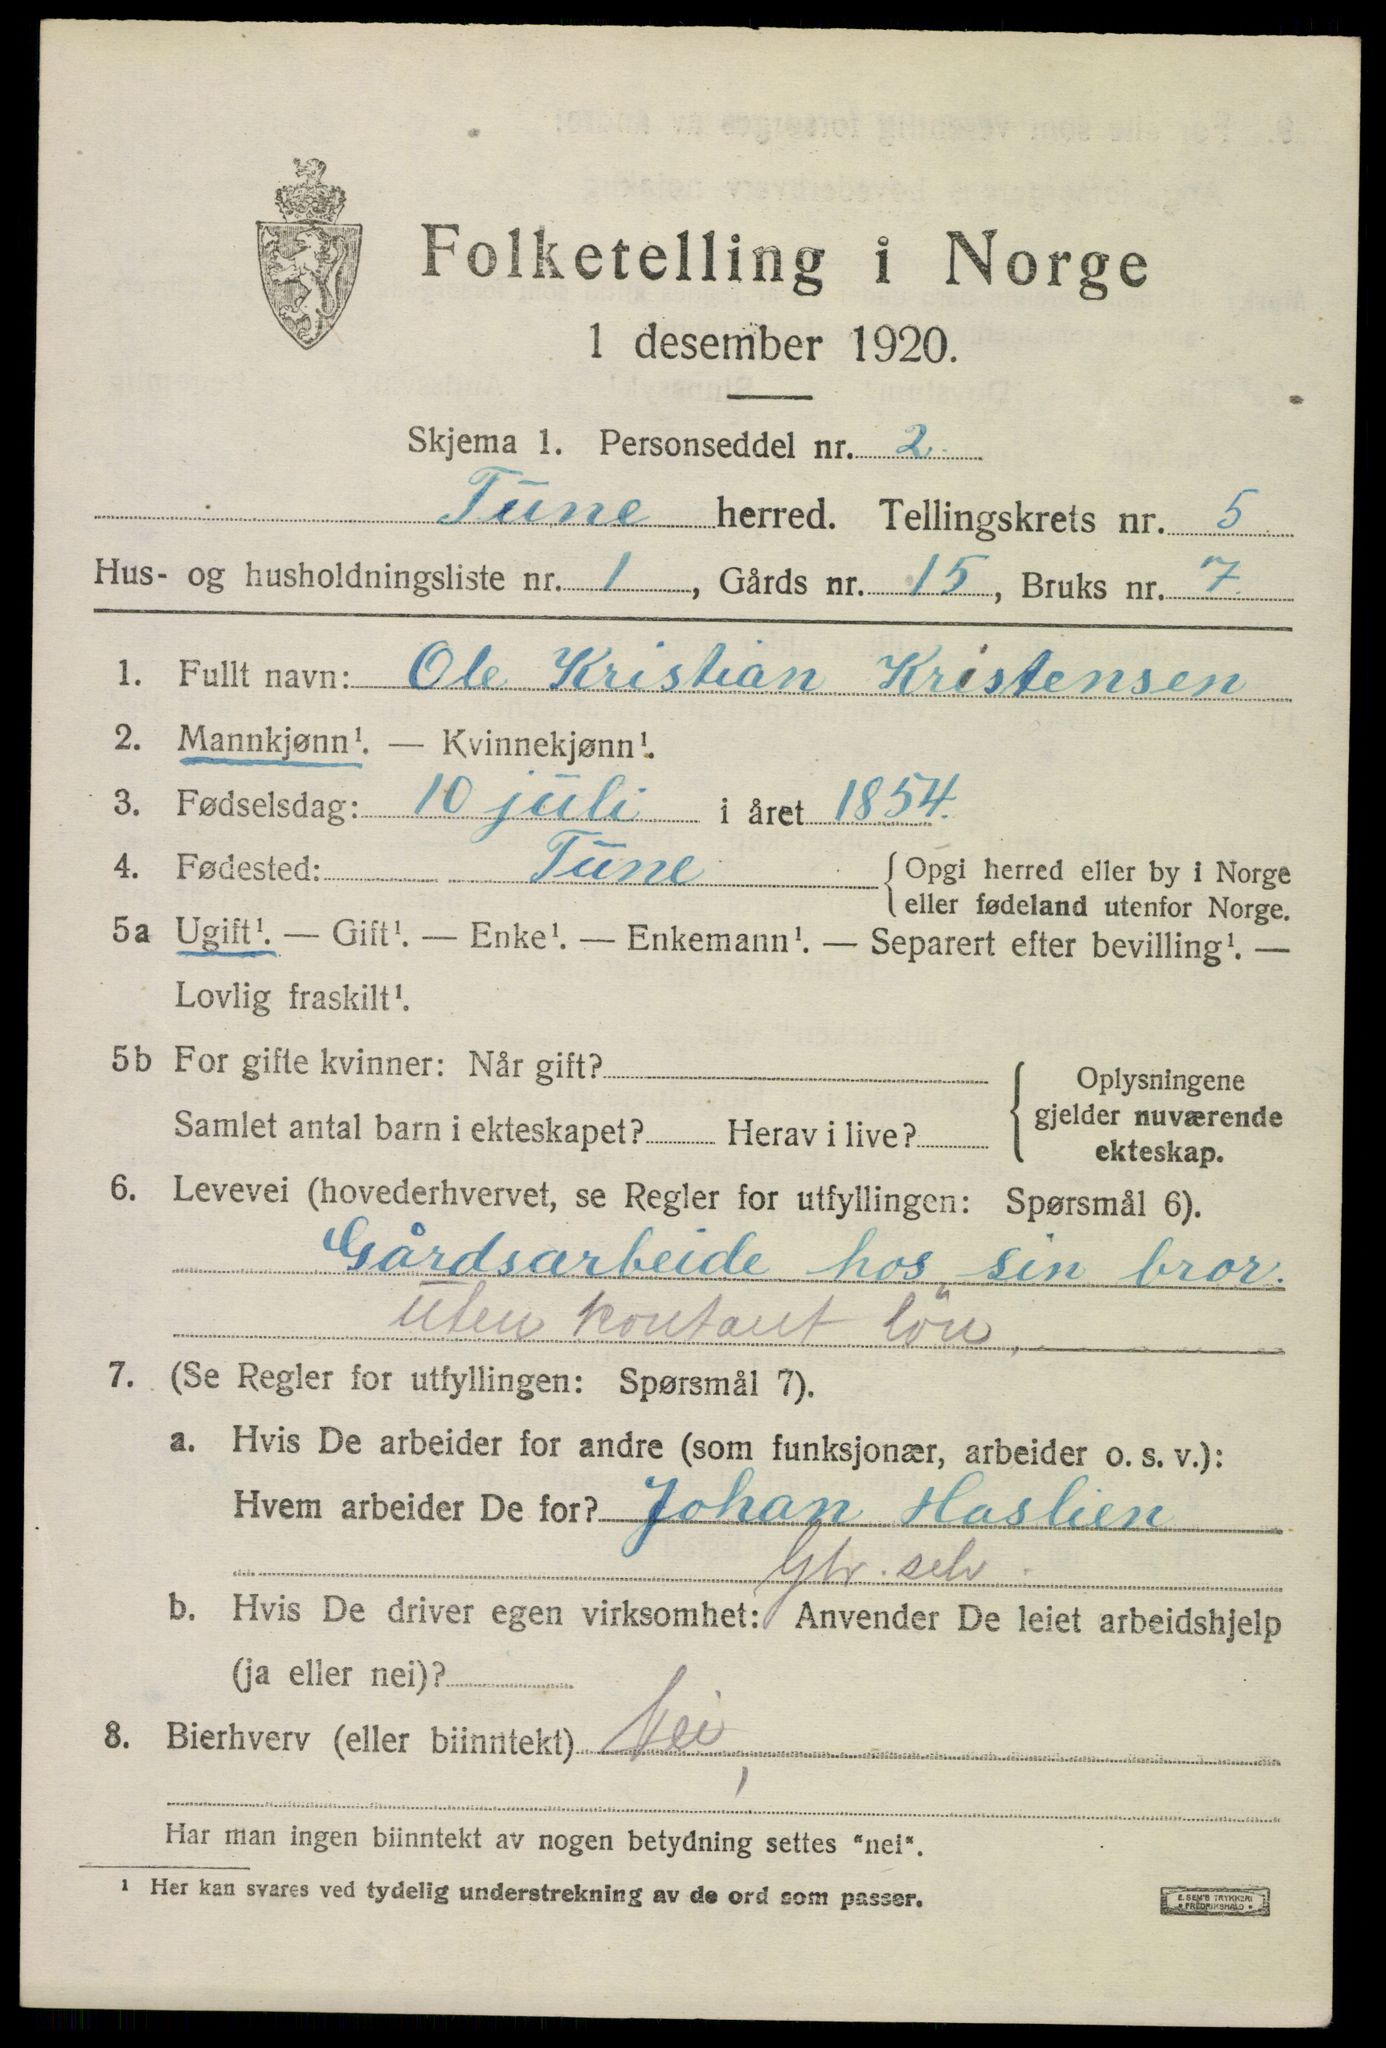 Folketelling i Norge
1 desember 1920.
Skjema 1. Personseddel nr. 2.
Tune herred. Tellingskrets nr. 5
Hus- og husholdningsliste nr. 1, Gårds nr. 15, Bruks nr. 7.
1. Fullt navn: Ole Kristian Kristensen
2. Mannkjønn¹. — Kvinnekjønn¹.
3. Fødselsdag: 10 juli i året 1854.
4. Fødested: Tune { Opgi herred eller by i Norge
eller fødeland utenfor Norge.
5a Ugift¹. — Gift¹. — Enke¹. — Enkemann¹. — Separert efter bevilling¹. —
Lovlig fraskilt¹.
5b For gifte kvinner: Når gift?
Samlet antal barn i ekteskapet? Herav i live?
{ Oplysningene
gjelder nuværende
ekteskap.
6. Levevei (hovederhvervet, se Regler for utfyllingen: Spørsmål 6).
Gårdsarbeide hos sin bror.
uten kontant lön,
7. (Se Regler for utfyllingen: Spørsmål 7).
a. Hvis De arbeider for andre (som funksjonær, arbeider o. s. v.):
Hvem arbeider De for? Johan Haslien
Gbr. selv.
b. Hvis De driver egen virksomhet: Anvender De leiet arbeidshjelp
(ja eller nei)?
8. Bierhverv (eller biinntekt) Nei,
Har man ingen biinntekt av nogen betydning settes "nei".
¹ Her kan svares ved tydelig understrekning av de ord som passer.
E. SEM'S TRYKKERI
• FREDRIKSHALD •